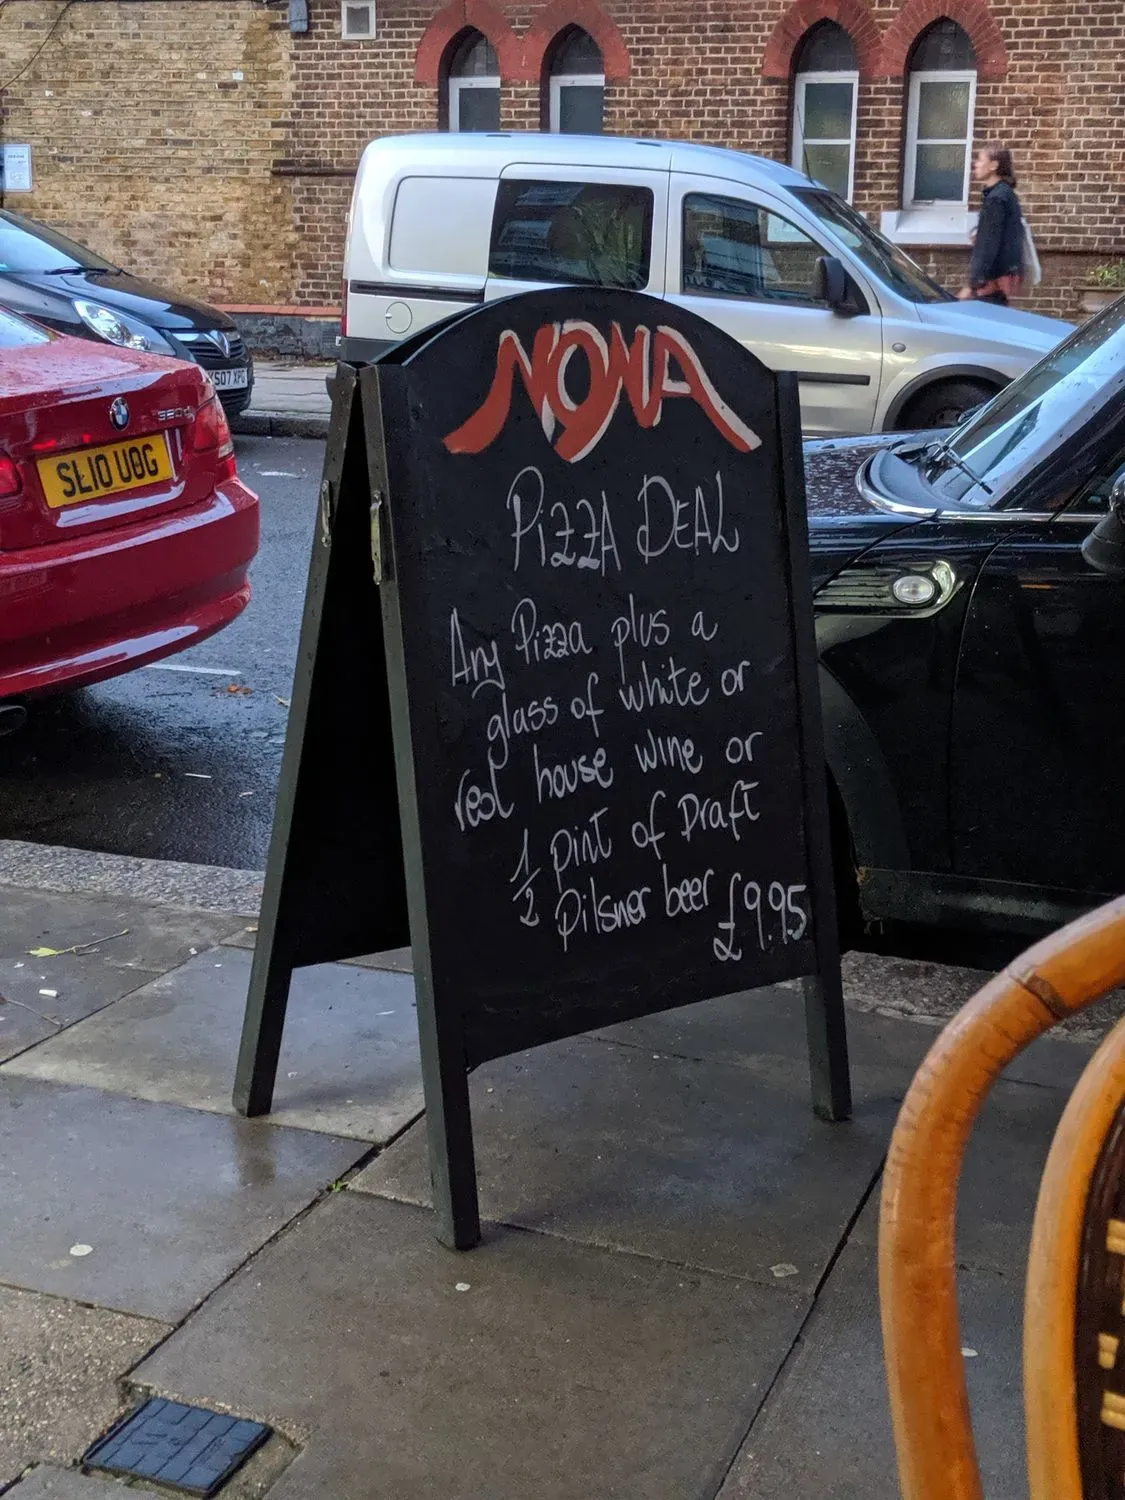 NONA
PIZZA DEAL
Any Pizza plus a
glass of white or
red house wine or
1/2 pint of Draft
Pilsner beer £9.95
SL10 U0G
KS07 XPG